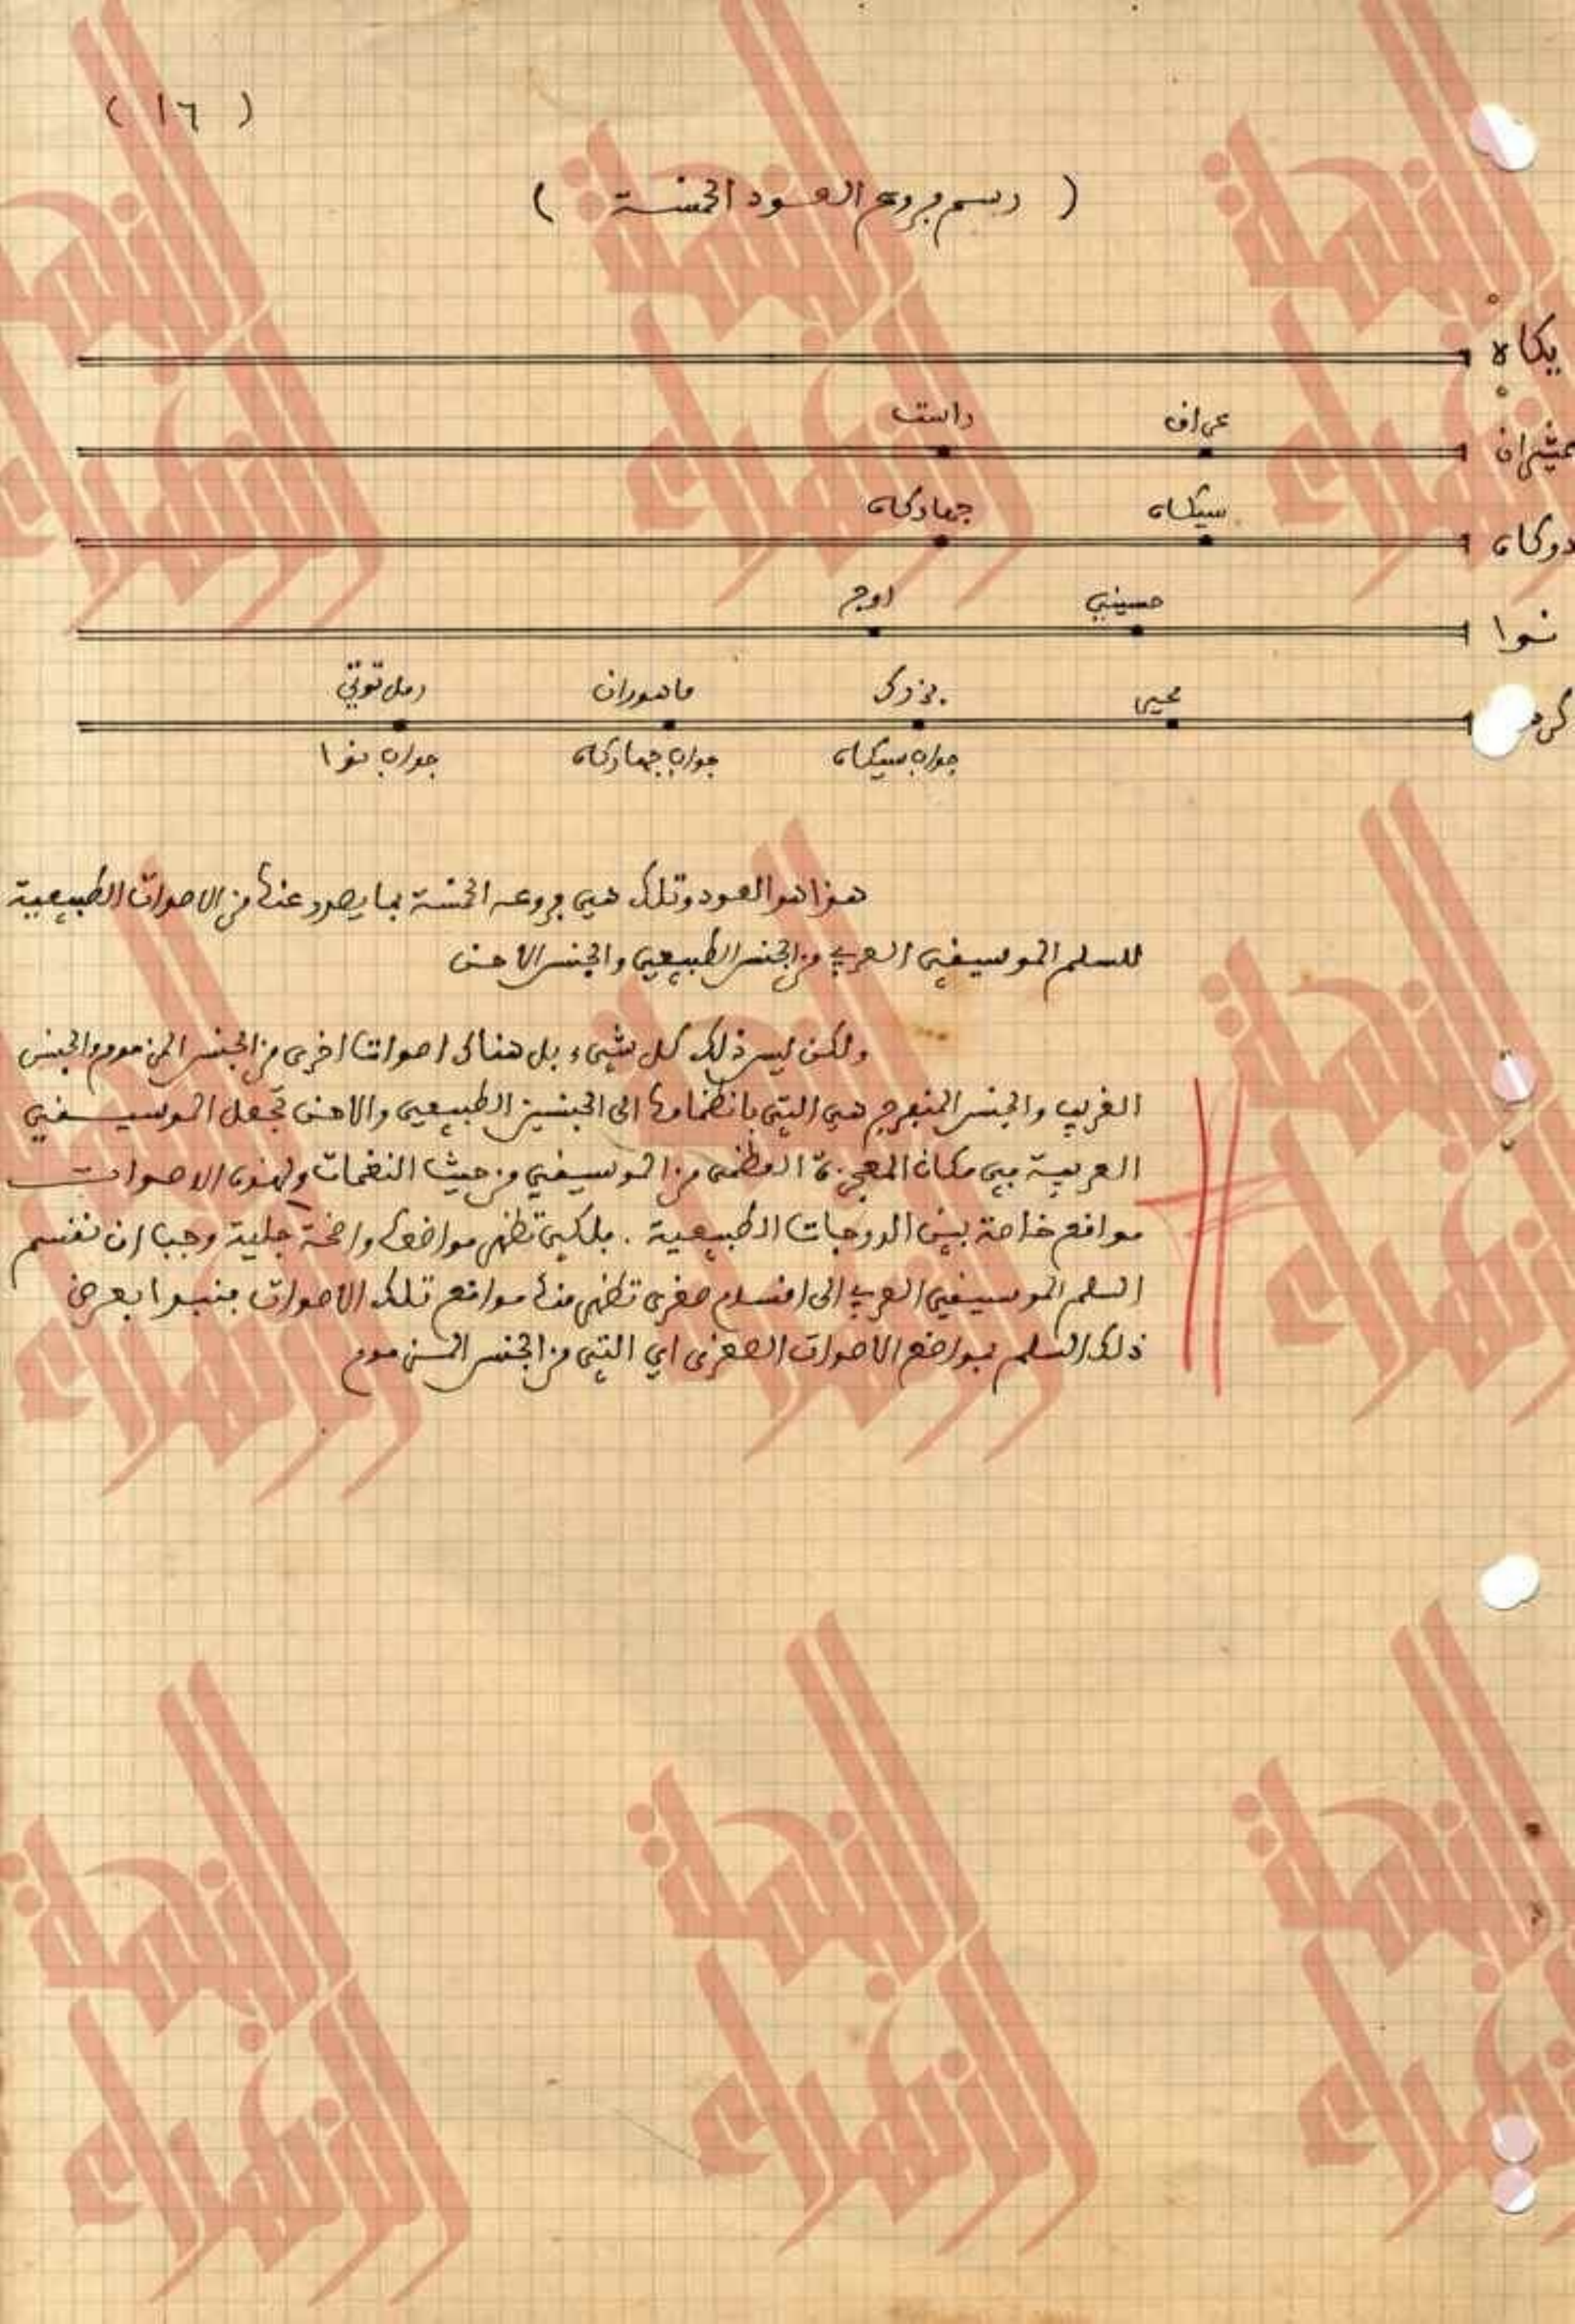 ( ١٦ )
( رسم فروع العود الخمسة )
يكاه
عراق راست
عشيران
سيكاه جهاركاه
دوكاه
حسيني اوج
نوا
محير بزرك ماهوران رمل توتي
كرد
جواب سيكاه جواب جهاركاه جواب نوا
هذا هو العود وتلك هي فروعه الخمسة بما يصدر عنها من الاصوات الطبيعية
للسلم الموسيقي العربي من الجنس الطبيعي والجنس الاحن
ولكن ليس ذلك كل شيء بل هناك اصواتا اخرى من الجنس المزموم والجنس
الغريب والجنس المنفرج هي التي بانظمامها الى الجنسين الطبيعي والاحن تجعل الموسيقي
العربية في مكان المعجزة العظمى من الموسيقي من حيث النغمات ولهذه الاصوات
مواقع خاصة بين الدرجات الطبيعية . ولكي تظهر مواضعها واضحة جلية وجب ان نقسم
السلم الموسيقي العربي الى اقسام صغرى تظهر منها مواقع تلك الاصوات فنبدا بعرض
ذلك السلم بمواضع الاصوات الصغرى اي التي من الجنس المزموم
النهمة
الزهراء